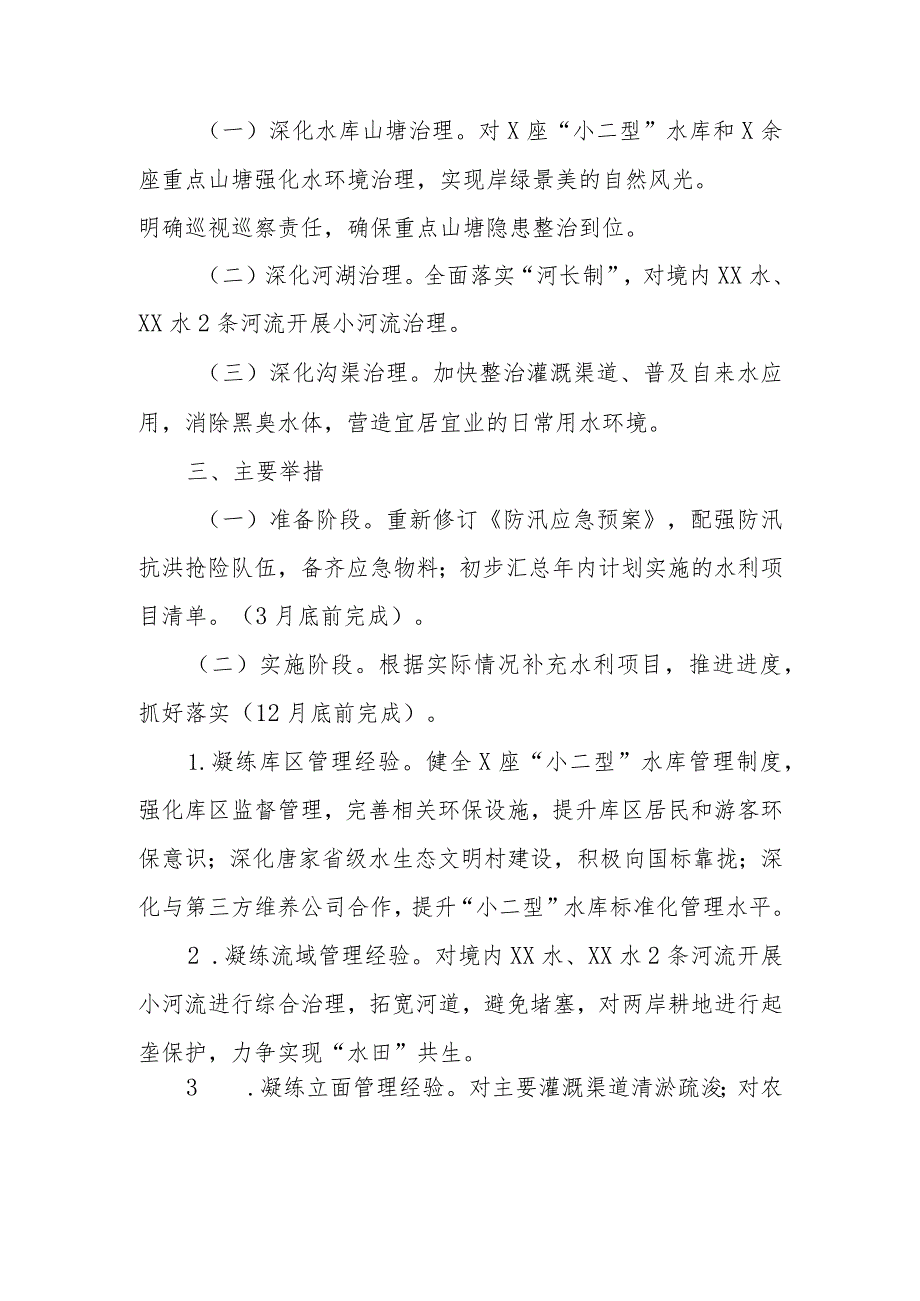 （一）深化水库山塘治理。对X座“小二型”水库和X余
座重点山塘强化水环境治理，实现岸绿景美的自然风光。
明确巡视巡察责任，确保重点山塘隐患整治到位。
（二）深化河湖治理。全面落实“河长制”，对境内XX水、
XX水2条河流开展小河流治理。
（三）深化沟渠治理。加快整治灌溉渠道、普及自来水应
用，消除黑臭水体，营造宜居宜业的日常用水环境。
三、主要举措
（一）准备阶段。重新修订《防汛应急预案》，配强防汛
抗洪抢险队伍，备齐应急物料；初步汇总年内计划实施的水利项
目清单。（3月底前完成）。
（二）实施阶段。根据实际情况补充水利项目，推进进度，
抓好落实（12月底前完成）。
1.凝练库区管理经验。健全X座“小二型”水库管理制度，
强化库区监督管理，完善相关环保设施，提升库区居民和游客环
保意识；深化唐家省级水生态文明村建设，积极向国标靠拢；深
化与第三方维养公司合作，提升“小二型”水库标准化管理水平。
2.凝练流域管理经验。对境内XX水、XX水2条河流开展
小河流进行综合治理，拓宽河道，避免堵塞，对两岸耕地进行起
垄保护，力争实现“水田”共生。
3 .凝练立面管理经验。对主要灌溉渠道清淤疏浚；对农